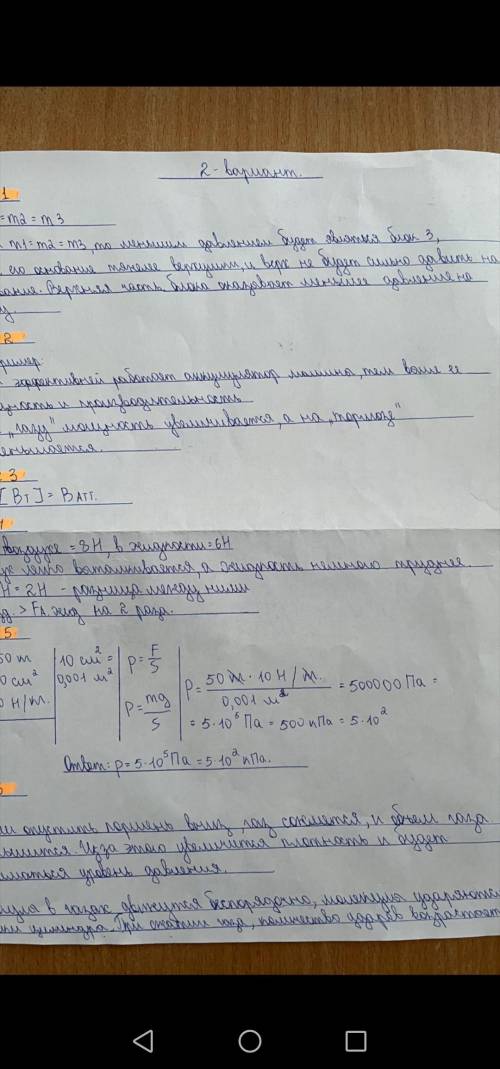 2-вариант.
1
=m2=m3
m1=m2=m3, то меньшим давлением будет являться блок 3,
его основание тяжелее верхушки, и верх не будет сильно давить на
вание. Верхняя часть блока оказывает меньшее давление на
у.
2
ример:
эффективней работает аккумулятор машина, тем выше ее
щность и производительность
"газу" мощность увеличивается, а на "тормозе"
еньшается.
3
[Вт] = Ватт.
воздухе = 8Н, в жидкости = 6Н
легко выталкивается, а жидкость немного труднее.
Н = 2Н - разница между ними
> FА жид на 2 раза.
5
50 т
0 см²
0 Н/кг.
10 см² =
0,001 м²
p = F/S
p = mg/S
p = 50 · 10 Н / 0,001 м² = 500000 Па =
= 5·10⁵ Па = 500 кПа = 5·10²
Ответ: p = 5·10⁵ Па = 5·10² кПа.
ли опустить поршень вниз, газ сожмется, и объем газа
ьшится. Из за этого увеличится плотность и будет
иматься уровень давления.
в газах движутся беспорядочно, молекулы ударяются
цилиндра. При сжатии газа, количество ударов возрастает